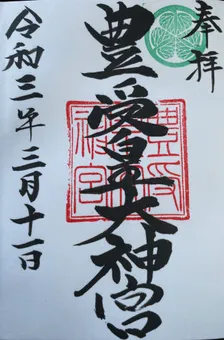 奉拝
豊受皇大神宮
令和三年三月十一日